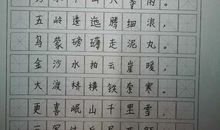 五岭逶迤腾细浪，
乌蒙磅礴走泥丸。
金沙水拍云崖暖，
大渡桥横铁索寒。
更喜岷山千里雪，
三军